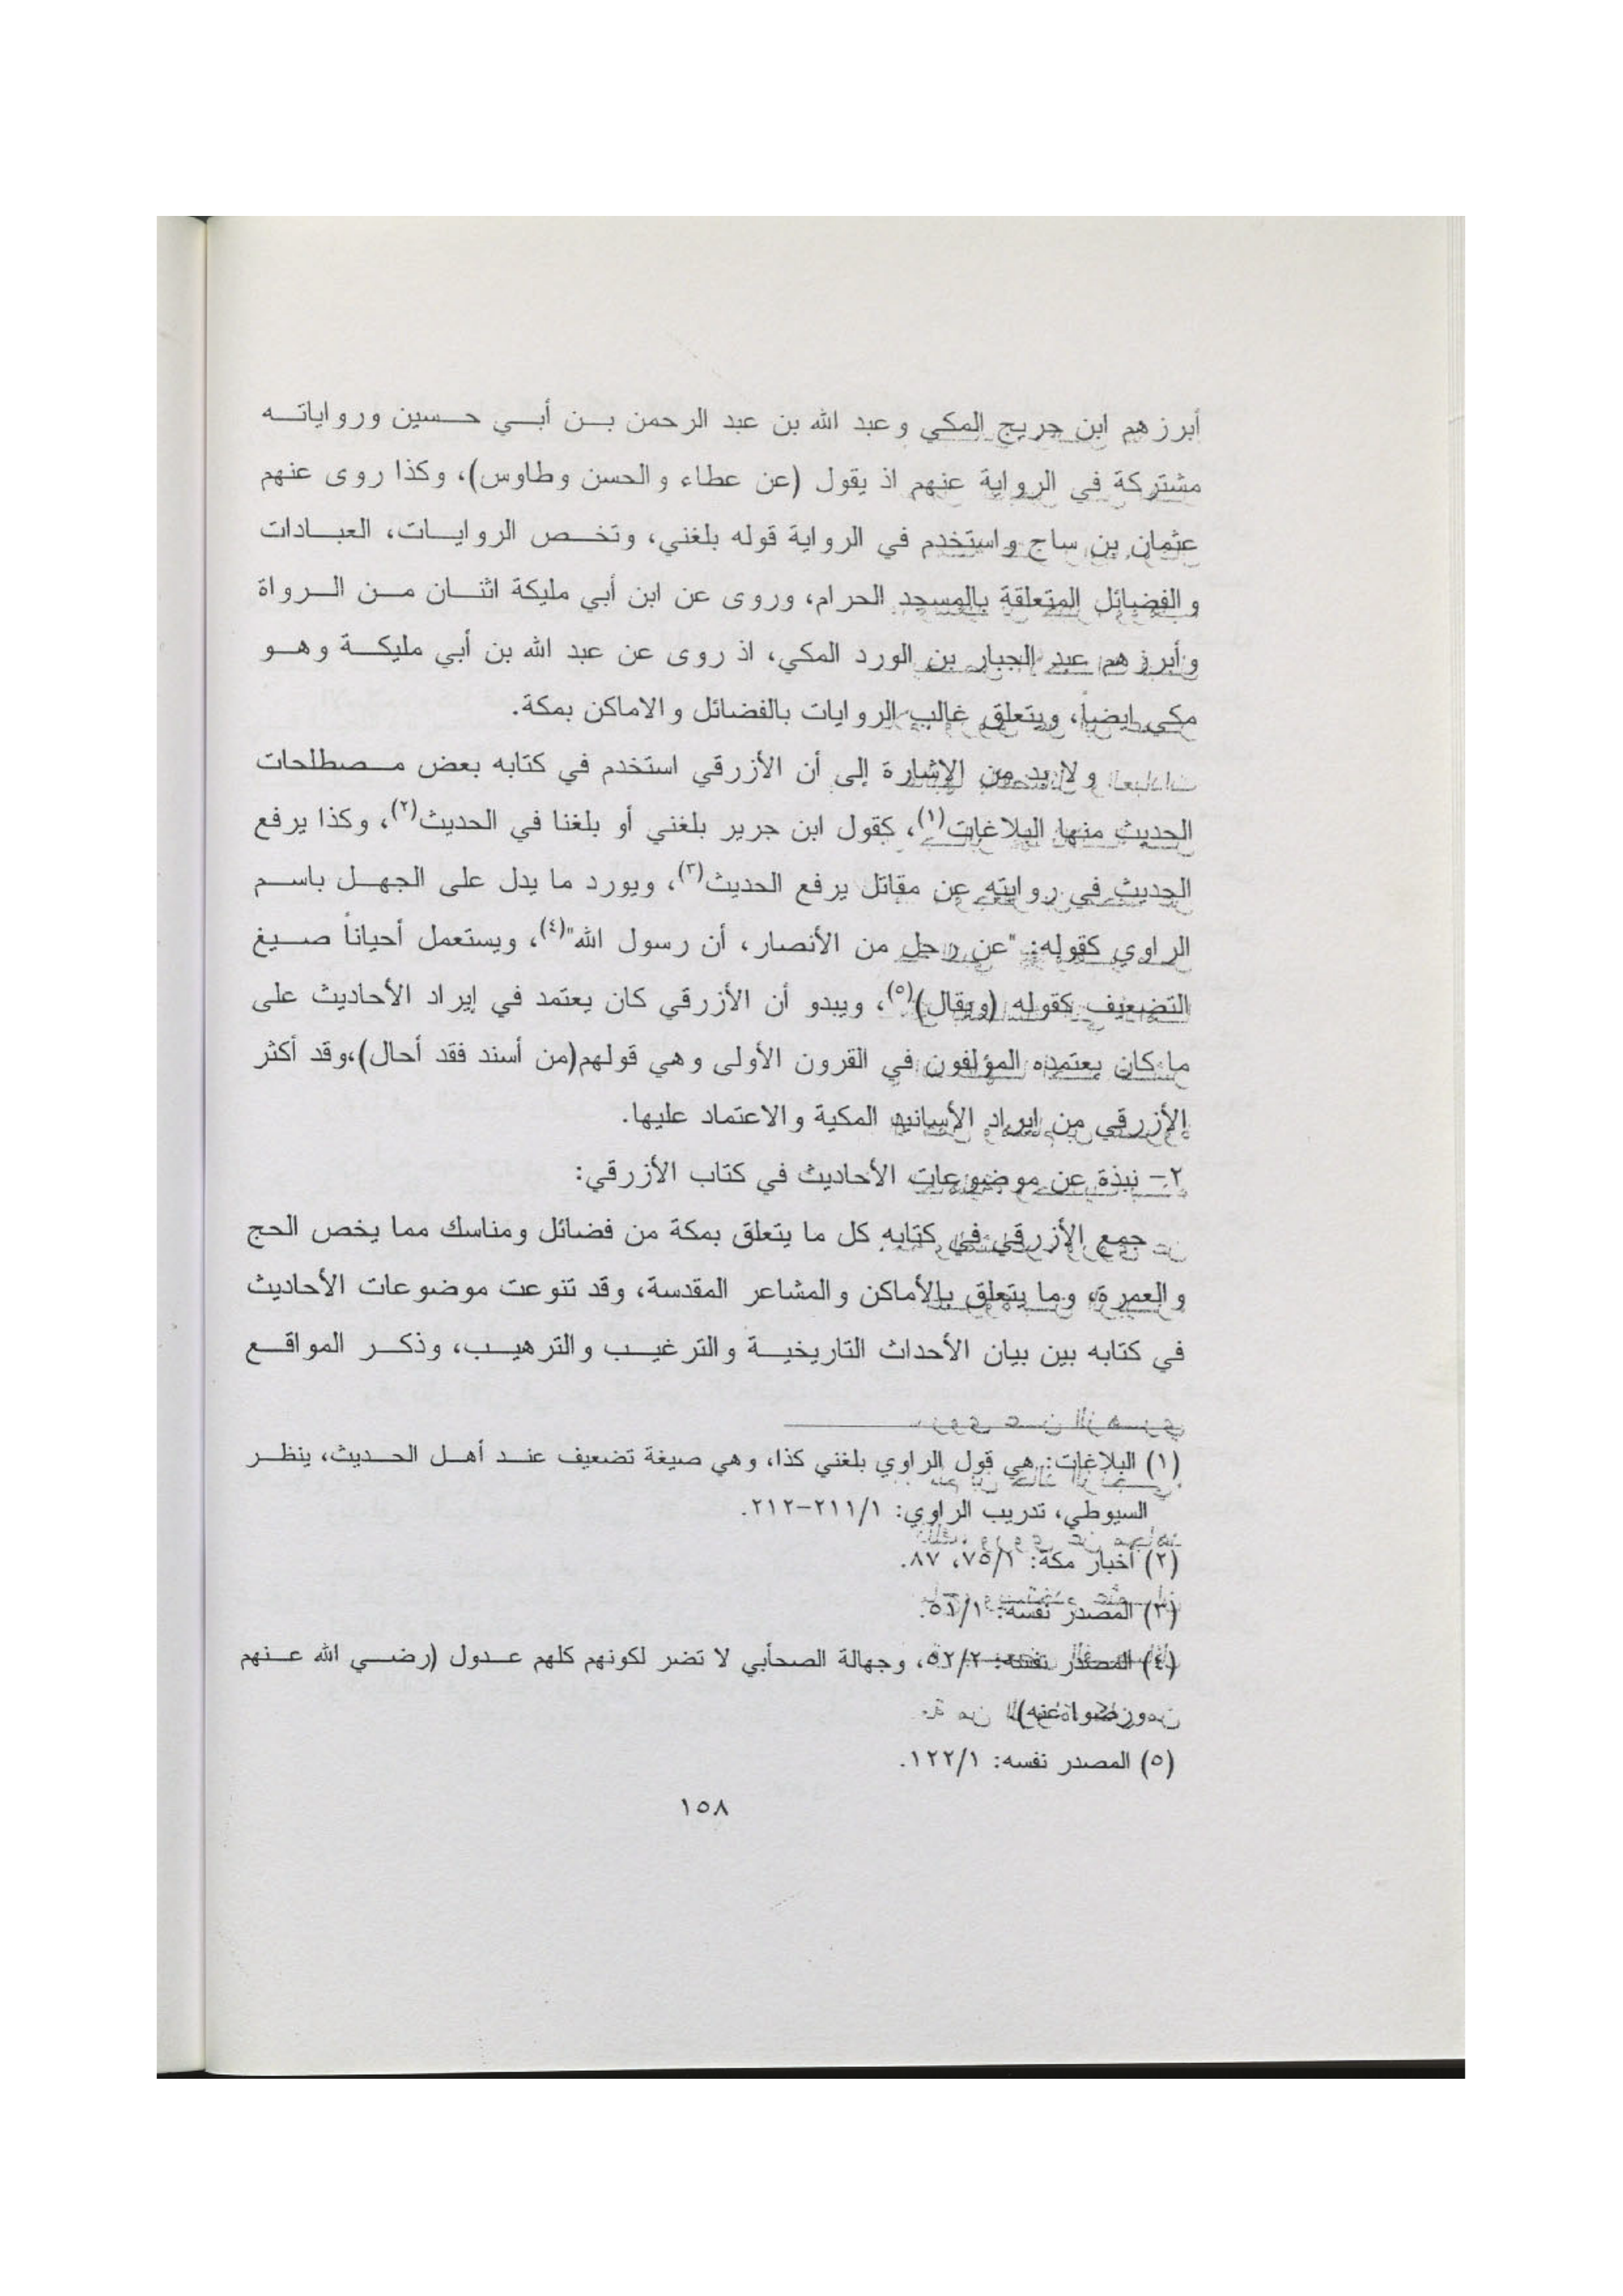 أبرزهم ابن جريج المكي وعبد الله بن عبد الرحمن بن أبي حسين ورواياته
مشتركة في الرواية عنهم اذ يقول (عن عطاء والحسن وطاوس)، وكذا روى عنهم
عثمان بن ساج واستخدم في الرواية قوله بلغني، وتخص الروايات، العبادات
والفضائل المتعلقة بالمسجد الحرام، وروى عن ابن أبي مليكة اثنان من الرواة
وأبرزهم عبد الجبار بن الورد المكي، اذ روى عن عبد الله بن أبي مليكة وهو
مكي ايضاً، ويتعلق غالب الروايات بالفضائل والاماكن بمكة.
ولابد من الإشارة إلى أن الأزرقي استخدم في كتابه بعض مصطلحات
الحديث منها البلاغات(١)، كقول ابن جرير بلغني أو بلغنا في الحديث(٢)، وكذا يرفع
الحديث في روايته عن مقاتل يرفع الحديث(٣)، ويورد ما يدل على الجهل باسم
الراوي كقوله: "عن رجل من الأنصار، أن رسول الله"(٤)، ويستعمل أحياناً صيغ
التضعيف كقوله (ويقال)(٥)، ويبدو أن الأزرقي كان يعتمد في إيراد الأحاديث على
ما كان يعتمده المؤلفون في القرون الأولى وهي قولهم(من أسند فقد أحال)،وقد أكثر
الأزرقي من ايراد الأسانيد المكية والاعتماد عليها.
٢- نبذة عن موضوعات الأحاديث في كتاب الأزرقي:
جمع الأزرقي في كتابه كل ما يتعلق بمكة من فضائل ومناسك مما يخص الحج
والعمرة، وما يتعلق بالأماكن والمشاعر المقدسة، وقد تنوعت موضوعات الأحاديث
في كتابه بين بيان الأحداث التاريخية والترغيب والترهيب، وذكر المواقع
(١) البلاغات: هي قول الراوي بلغني كذا، وهي صيغة تضعيف عند أهل الحديث، ينظر
السيوطي، تدريب الراوي: ٢١١/١-٢١٢.
(٢) أخبار مكة: ٧٥/١، ٨٧.
(٣) المصدر نفسه: ٥١/١.
(٤) المصدر نفسه: ٥٢/٢، وجهالة الصحأبي لا تضر لكونهم كلهم عدول (رضي الله عنهم
ورضوا عنه)
(٥) المصدر نفسه: ١٢٢/١.
١٥٨